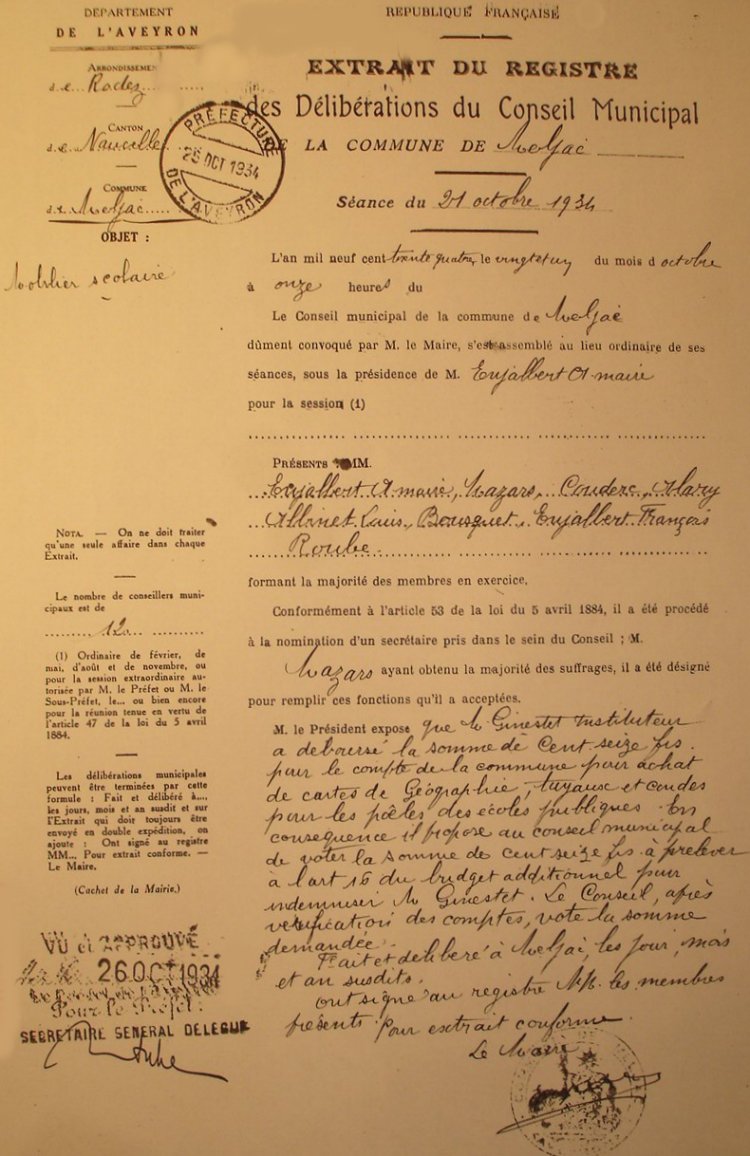 DÉPARTEMENT
DE L'AVEYRON
ARRONDISSEMENT
de Rodez
CANTON
de Naucelle
COMMUNE
de Meljac
OBJET :
Mobilier scolaire
PRÉFECTURE
25 OCT 1934
DE L'AVEYRON
RÉPUBLIQUE FRANÇAISE
EXTRAIT DU REGISTRE
des Délibérations du Conseil Municipal
DE LA COMMUNE DE Meljac
Séance du 21 octobre 1934
L'an mil neuf cent trente quatre, le vingt et un du mois d octobre
à onze heures du
Le Conseil municipal de la commune de Meljac
dûment convoqué par M. le Maire, s'est assemblé au lieu ordinaire de ses
séances, sous la présidence de M. Enjalbert A maire
pour la session (1)
PRÉSENTS MM.
Enjalbert A maire, Mazars, Couderc, Alary
Albinet Louis, Bousquet, Enjalbert François
Roube
formant la majorité des membres en exercice.
Conformément à l'article 53 de la loi du 5 avril 1884, il a été procédé
à la nomination d'un secrétaire pris dans le sein du Conseil ; M.
Mazars ayant obtenu la majorité des suffrages, il a été désigné
pour remplir ces fonctions qu'il a acceptées.
M. le Président expose que M Ginestet Instituteur
a deboursé la somme de Cent seize frs
pour le compte de la commune pour achat
de cartes de Géographie, tuyaux et coudes
pour les poêles des écoles publiques. En
conséquence il propose au conseil municipal
de voter la somme de cent seize frs à prélever
à l'art 16 du budget additionnel pour
indemniser M Ginestet. Le Conseil, après
vérification des comptes, vote la somme
demandée.
Fait et délibéré à Meljac, les jour, mois
et an susdits.
Ont signé au registre MM. les membres
présents. Pour extrait conforme.
Le Maire
NOTA. — On ne doit traiter
qu'une seule affaire dans chaque
Extrait.
Le nombre de conseillers muni-
cipaux est de
12
(1) Ordinaire de février, de
mai, d'août et de novembre, ou
pour la session extraordinaire au-
torisée par M. le Préfet ou M. le
Sous-Préfet, le... ou bien encore
pour la réunion tenue en vertu de
l'article 47 de la loi du 5 avril
1884.
Les délibérations municipales
peuvent être terminées par cette
formule : Fait et délibéré à...,
les jours, mois et an susdit et sur
l'Extrait qui doit toujours être
envoyé en double expédition, on
ajoute : Ont signé au registre
MM... Pour extrait conforme. —
Le Maire,
(Cachet de la Mairie.)
VU et APPROUVÉ
26 OCT 1934
Pour le Préfet
SECRETAIRE GENERAL DELEGUE